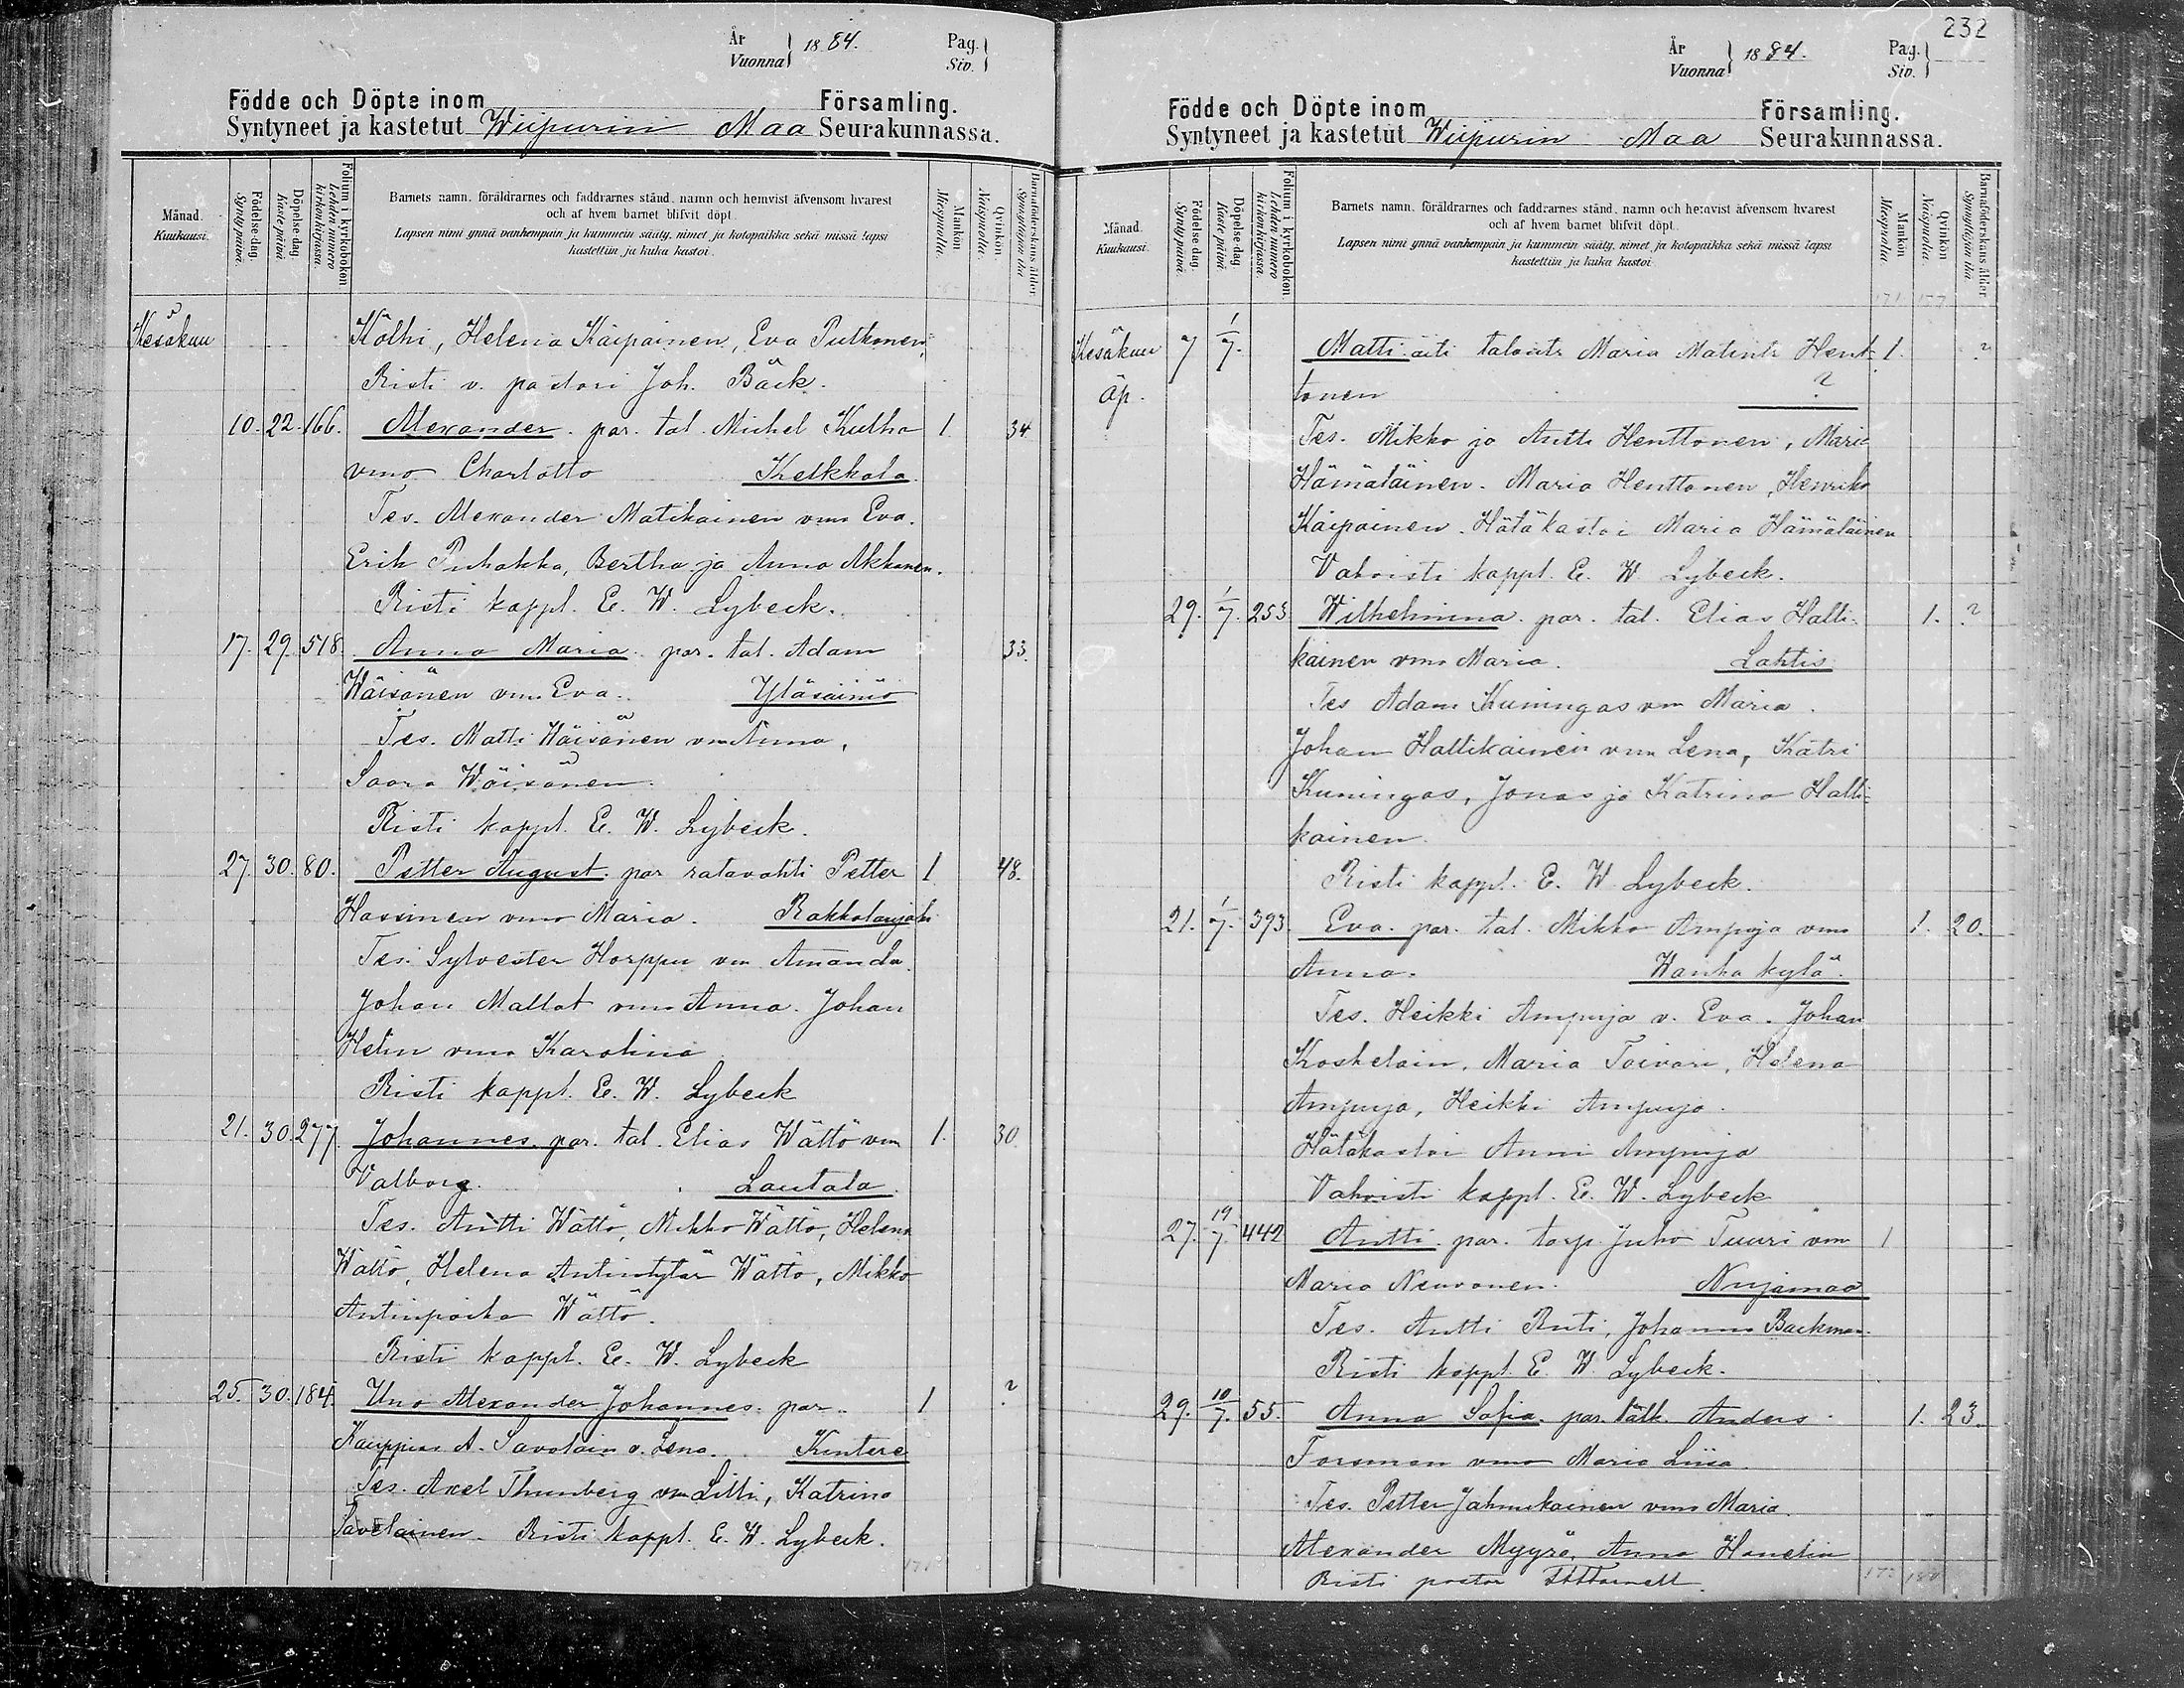 År
Vuonna } 1884.
Pag.
Siv. }
Födde och Döpte inom Församling.
Syntyneet ja kastetut Wiipurin Maa Seurakunnassa.
Månad. Kuukausi.
Födelse-dag. Syntypäivä.
Döpelse-dag. Kaste päivä.
Folium i kyrkoboken Lehden numero kirkonkirjassa.
Barnets namn, föräldrarnes och faddrarnes stånd, namn och hemvist äfvensom hvarest
och af hvem barnet blifvit döpt.
Lapsen nimi ynnä vanhempain ja kummein sääty, nimet ja kotopaikka sekä missä lapsi
kastettiin ja kuka kastoi.
Mankön Miespuolia.
Qvinkön Naispuolia.
Barnaföderskans ålder Synnyttäjän ikä
Kesäkuu Kölhi, Helena Käipainen, Eva Putkonen
Risti v. pastori Joh. Bäck.
10. 22. 166. Alexander. par. tal. Michel Kulha 1. 34
vmo Charlotta Kelkkala.
Tes. Alexander Matikainen vmo Eva.
Erik Puhakka, Bertha ja Anna Akkanen.
Risti kappl. E. W. Lybeck.
17. 29. 518. Anna Maria. par. tal. Adam 33.
Wäisänen vmo Eva. Yläsäiniö
Tes. Matti Wäisänen vmo Anna,
Saara Wäisänen.
Risti kappl. E. W. Lybeck.
27. 30. 80. Petter August. par ratavahti Petter 1 48.
Hassinen vmo Maria. Rakkolanjoki
Tes. Sylvester Horppu vm Amanda.
Johan Mallat vmo Anna. Johan
Helin vmo Karolina
Risti kappl. E. W. Lybeck
21. 30. 277. Johannes. par. tal. Elias Wättö vm 1. 30.
Valborg. Lautala.
Tes. Antti Wättö, Mikko Wättö, Helena
Wättö, Helena Antintytär Wättö, Mikko
Antinpoika Wättö.
Risti kappl. E. W. Lybeck
25. 30. 184. Uno Alexander Johannes. par. 1 ?
Kauppias A. Savolain v. Lena. Kintere
Tes. Axel Thunberg vm Lilli, Katrina
Savolainen. Risti kappl. E. W. Lybeck.
171
232
År
Vuonna } 1884.
Pag.
Siv. }
Födde och Döpte inom Församling.
Syntyneet ja kastetut Wiipurin Maa Seurakunnassa.
Månad. Kuukausi.
Födelse dag. Synty päivä.
Döpelse dag. Kaste päivä.
Folium i kyrkoboken Lehden numero kirkonkirjassa.
Barnets namn, föräldrarnes och faddrarnes stånd, namn och hemvist äfvensom hvarest
och af hvem barnet blifvit döpt.
Lapsen nimi ynnä vanhempain ja kummein sääty, nimet ja kotopaikka sekä missä lapsi
kastettiin ja kuka kastoi
Mankön Miespuolia.
Qvinkön Naispuolia.
Barnaföderskans ålder Synnyttäjän ikä.
171 177
Kesäkuu 7 1/7. Matti äiti talontr Maria Matintr Hent- 1. ?
äp. tonen ?
Tes. Mikko ja Antti Henttonen, Maria
Hämäläinen. Maria Henttonen, Henrika
Käipainen. Hätäkastoi Maria Hämäläinen
Vahvisti kappl. E. W. Lybeck.
29. 1/7. 253 Wilhelmina. par. tal. Elias Halli- 1. ?
kainen vmo Maria. Lahtis
Tes Adam Kuningas vm Maria.
Johan Hallikainen vm Lena, Katri
Kuningas, Jonas ja Katrina Halli-
kainen.
Risti kappl. E. W. Lybeck.
21. 1/7. 393 Eva. par. tal. Mikko Ampuja vmo 1. 20.
Anna. Wanha kylä.
Tes. Heikki Ampuja v. Eva. Johan
Koskelain, Maria Toivari, Helena
Ampuja, Heikki Ampuja.
Hätäkastoi Anni Ampuja
Vahvisti kappl. E. W. Lybeck
27. 19/7. 442 Antti. par. torp. Juho Tuuri vm 1
Maria Neuvonen. Nuijamaa
Tes. Antti Ruti, Johanna Backman.
Risti kappl. E. W. Lybeck.
29. 10/7. 55. Anna Sofia. par. Välk. Anders 1. 23.
Forsman vmo Maria Liisa.
Tes. Petter Jahnukainen vmo Maria.
Alexander Myyrä, Anna Hanelin
Risti pastor